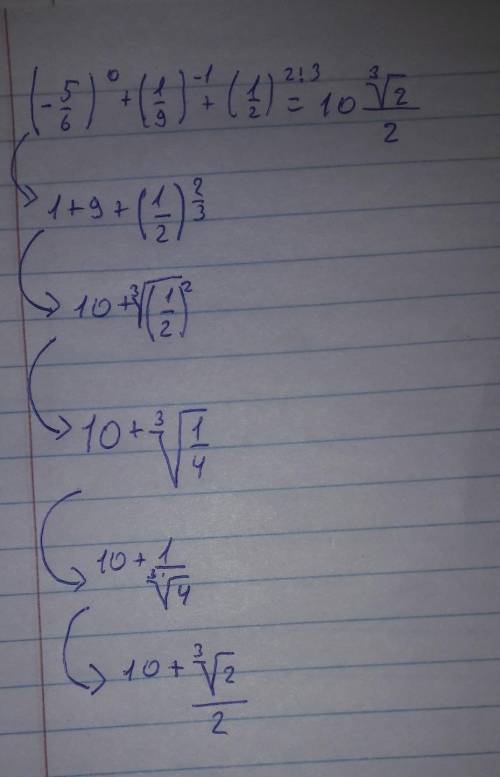 (-5/6)^0 + (1/9)^-1 + (1/2)^2:3 = 10 ∛2/2
1+9+(1/2)^2/3
10+∛(1/2)^2
10+∛1/4
10+1/∛4
10+∛2/2